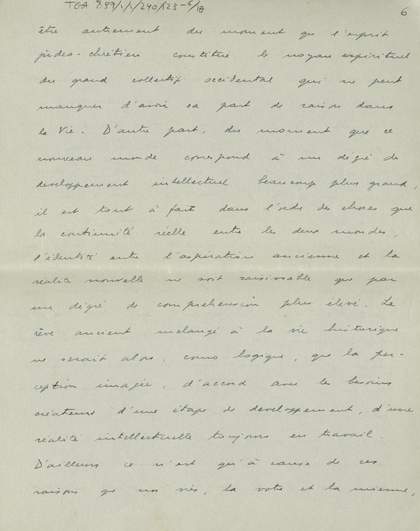 TGA 9?49/1/1/240/123-6/18
6
être autrement du moment que l'esprit
judeo-chrétien constitue le noyau espirituel
du grand collectif occidental qui ne peut
manquer d'avoir sa part de raison dans
la Vie. D'autre part, du moment que ce
nouveau monde correspond à un dégré de
developpement intellectuel beaucoup plus grand,
il est tout à fait dans l'ordre des choses que
la continuité réelle entre les deux mondes,
l'identité entre l'aspiration ancienne et la
realité nouvelle ne soit saisissable que par
un dégré de comprehension plus elevé. Le
rêve ancient melangé à la vie historique
ne serait alors, comme logique, que la per-
ception imagée, d'accord avec les besoins
créateurs d'une étape de developpement, d'une
realité intellectuelle toujours en travail.
D'ailleurs ce n'est qu'à cause de ces
raisons que nos vies, la votre et la mienne,